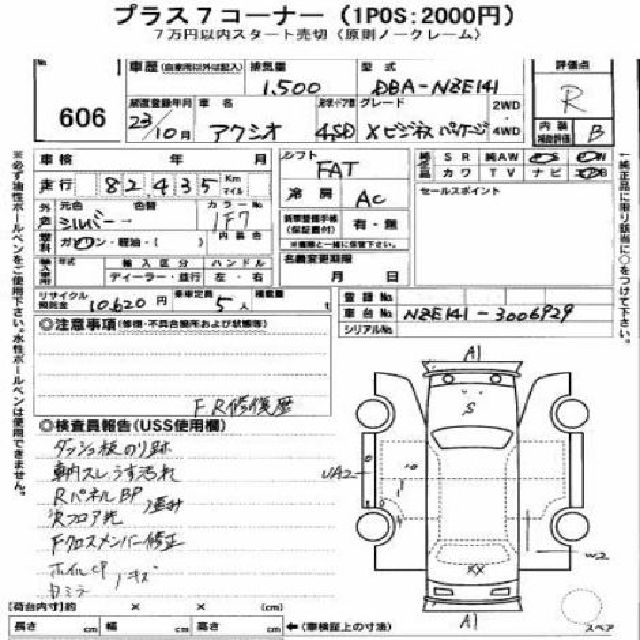 プラス7コーナー（1POS：2000円）
7万円以内スタート売切（原則ノークレーム）
№ 車歴（自家用以外は記入） 排気量 型式 評価点
606 1,500 DBA-NZE141 R
初度登録年月 車名 ドア型 グレード 2WD・4WD 内装補助評価 B
23/10月 アクシオ 4SD Xビジネスパッケージ
車検 年 月 シフト FAT 純正品 SR 純AW
走行 82,435 Km マイル 冷房 AC カワ TV ナビ
外色 元色 色替 カラーNo. セールスポイント
シルバー 1F7 新車整備手帳（保証書付） 有・無
燃料 ガソリン・軽油・（ ） 内装色 ※車両と一緒に保管下さい。
輸入車用 年式 輸入区分 ハンドル 名義変更期限
ディーラー・並行 左・右 月 日
リサイクル預託金 10,620円 乗車定員 5人 積載量 登録No.
車台No. NZE141-3006929
シリアルNo.
◎注意事項（修復・不具合箇所および状態等）
FR修復歴
◎検査員報告（USS使用欄）
ダッシュ板のり跡
車内スレ うす汚れ
RパネルBP
Fクロスメンバー修正
ホイルCP
キズ
A1
S
UA2
W2
XX
A1
スペア
（荷台内寸）約 × × （cm）
長さ cm 幅 cm 高さ cm ←（車検証上の寸法）
※必ず油性ボールペンをご使用下さい。水性ボールペンは使用できません。
※純正品に限り該当に○をつけて下さい。